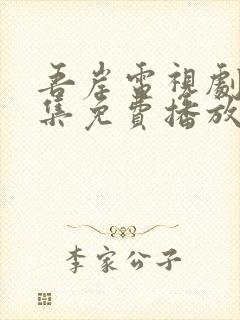 吾岸電視劇
集免費播放
李家公子